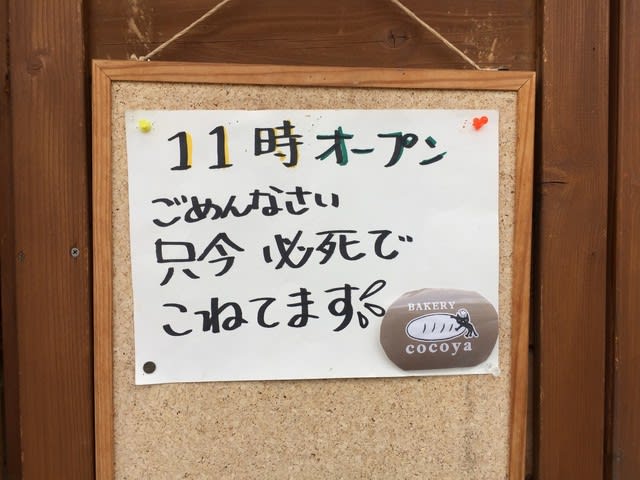 11時オープン
ごめんなさい
只今 必死で
こねてます
BAKERY
cocoya